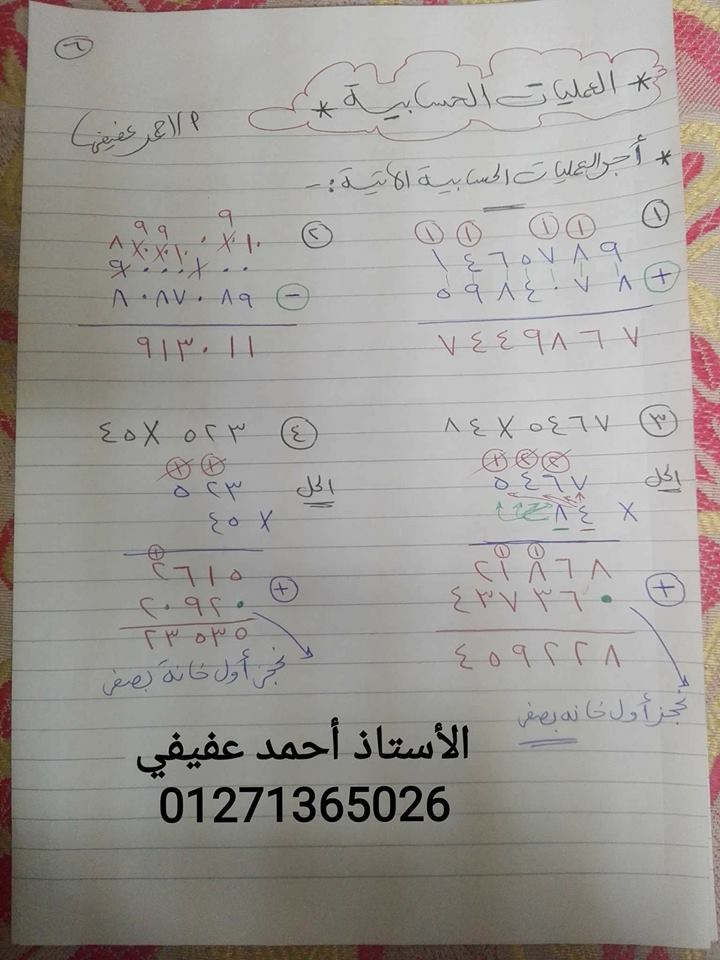 ٦
* العمليات الحسابية *
م/ احمد عفيفي
* أجر العمليات الحسابية الآتية :-
١
١ ١ ١ ١
١٤٦٥٧٨٩
+ ٥٩٨٤٠٧٨
٧٤٤٩٨٦٧
٢
٩ ٩ ٩
٨ ١٠ ١٠ ١٠ ٠ ١٠ ١٠
٩٠٠٠١٠٠
- ٨٠٨٧٠٨٩
٩١٣٠١١
٣ ٥٤٦٧ × ٨٤
الحل
١ ٢ ٢
٥٤٦٧
× ٨٤
١ ١
٢١٨٦٨
+ ٤٣٧٣٦٠
٤٥٩٢٢٨
نحجز أول خانه بصفر
٤ ٥٢٣ × ٤٥
الحل
١ ١
٥٢٣
× ٤٥
١
٢٦١٥
+ ٢٠٩٢٠
٢٣٥٣٥
نحجز أول خانة بصفر
الأستاذ أحمد عفيفي
01271365026